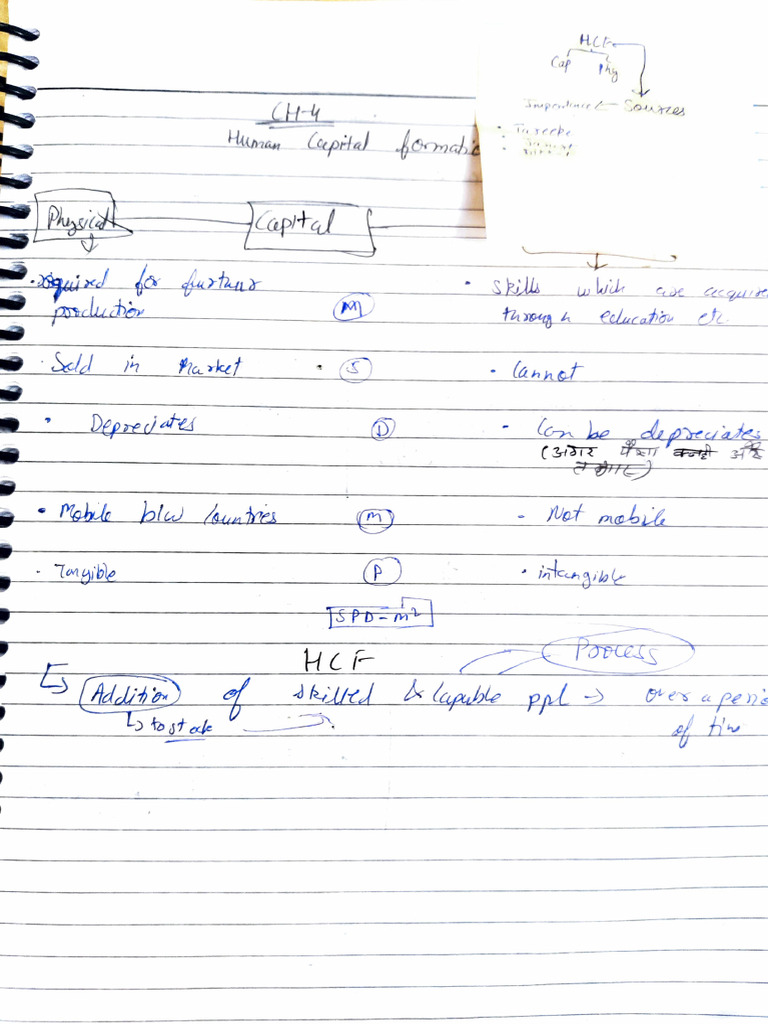 HCF
Cap Phy
Importance Sources
CH-4
Human Capital formatio
Physical Capital
• required for further production
(M)
• Skills which are acquire through education etc.
• Sold in market
• (S)
• Cannot
• Depreciates
(D)
• Can be depreciates
(अगर पैसा
• Mobile b/w Countries
(M)
- Not mobile
• Tangible
(P)
• intangible
SPD-m²
HCF
Process
Addition of skilled & Capable ppl → over a perio
↳ to stock
of time